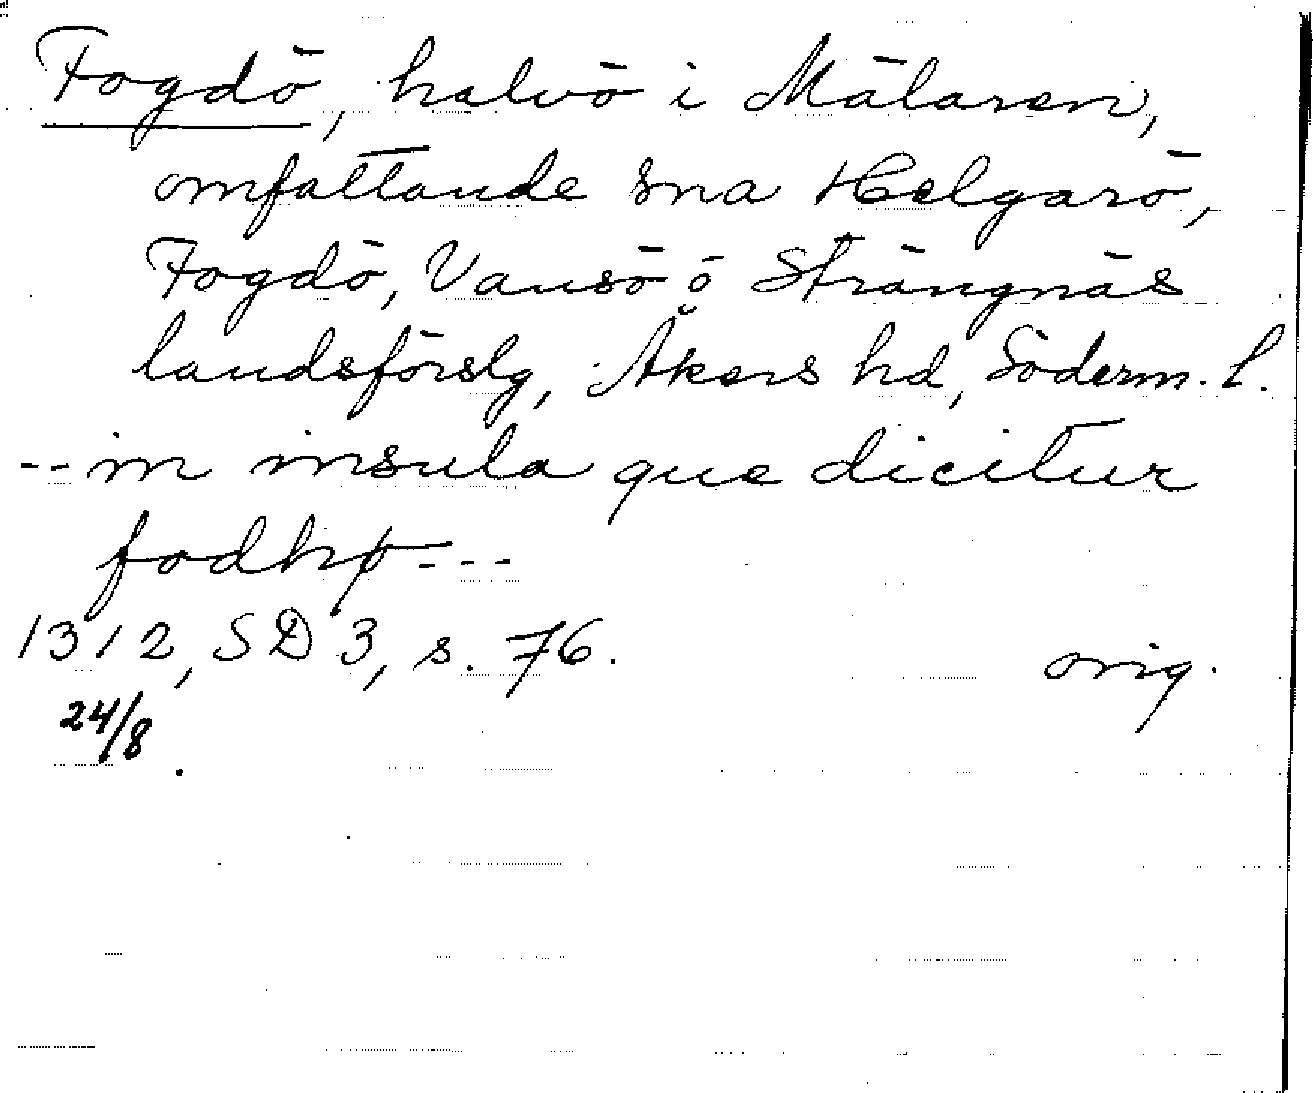 Fogdö, halvö i Mälaren,
omfattande sna Helgarö,
Fogdö, Vansö o Strängnäs
landsförslg, Åkers hd, Söderm. l.
-- in insula que dicitur
fodhø ---
1312, SD 3, s. 76. orig.
24/8.